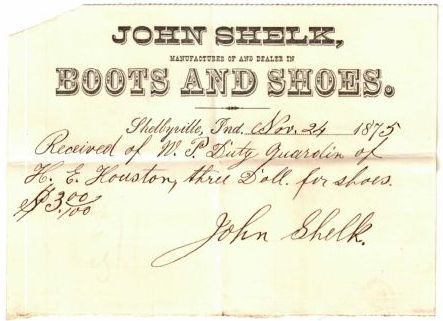 JOHN SHELK,
MANUFACTURER OF AND DEALER IN
BOOTS AND SHOES.
Shelbyville, Ind. Nov. 24 1875
Received of W. P. Duty Guardin of
H. E. Houston, three Doll. for shoes.
$3.00/100
John Shelk.